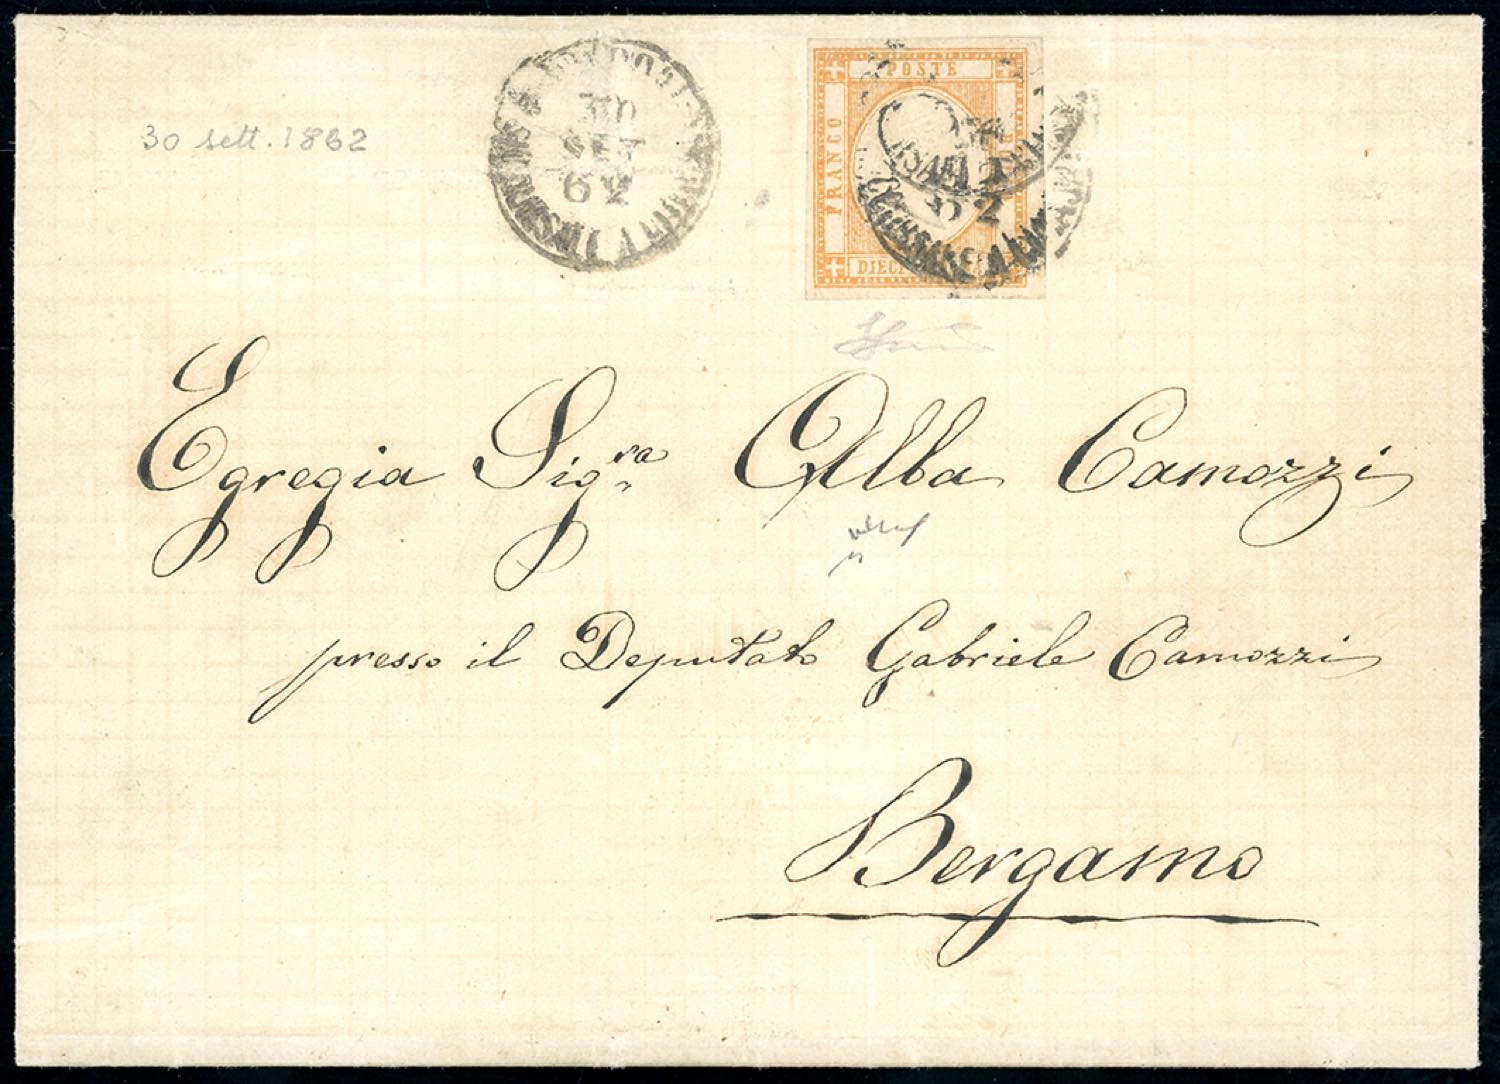 30 SET 62
POSTE
FRANCO
30 sett. 1862
Egregia Sig.ra Alba Camozzi
presso il Deputato Gabriele Camozzi
Bergamo